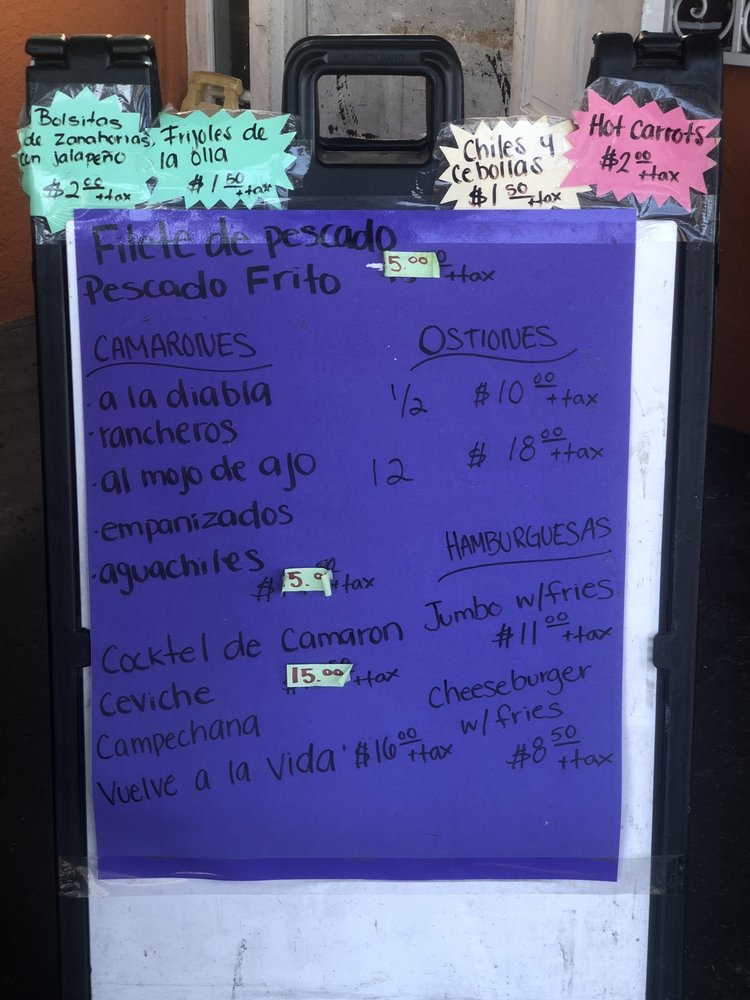 Bolsitas
de Zanahorias
con jalapeño
$2.00 +tax
Frijoles de
la olla
$1.50 +tax
Chiles y
Cebollas
$1.50 +tax
Hot Carrots
$2.00 +tax
Filete de pescado
Pescado Frito
5.00 +tax
CAMARONES
·a la diabla
·rancheros
·al mojo de ajo
·empanizados
·aguachiles
$ 5.0 +tax
Cocktel de Camaron
15.00 +tax
Ceviche
Campechana
Vuelve a la vida $16.00 +tax
OSTIONES
1/2 $10.00 +tax
12 $18.00 +tax
HAMBURGUESAS
Jumbo w/fries
$11.00 +tax
Cheeseburger
w/fries
$8.50 +tax